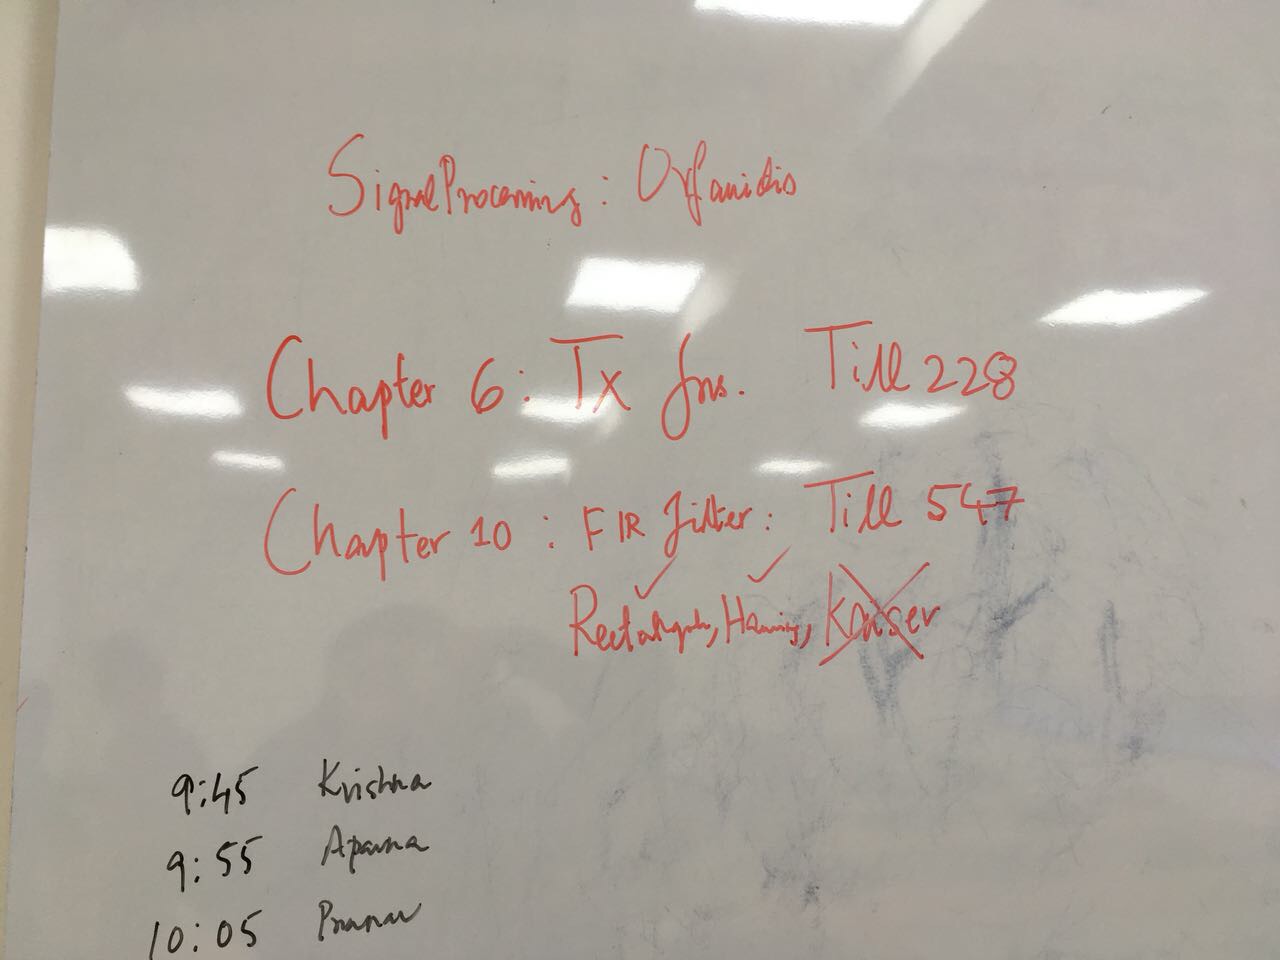 Signal Processing : Orfanidis
Chapter 6 : Tx fns. Till 228
Chapter 10 : FIR filter : Till 547
Rectangular, Hamming, Kaiser
9:45 Krishna
9:55 Aparna
10:05 Pranav